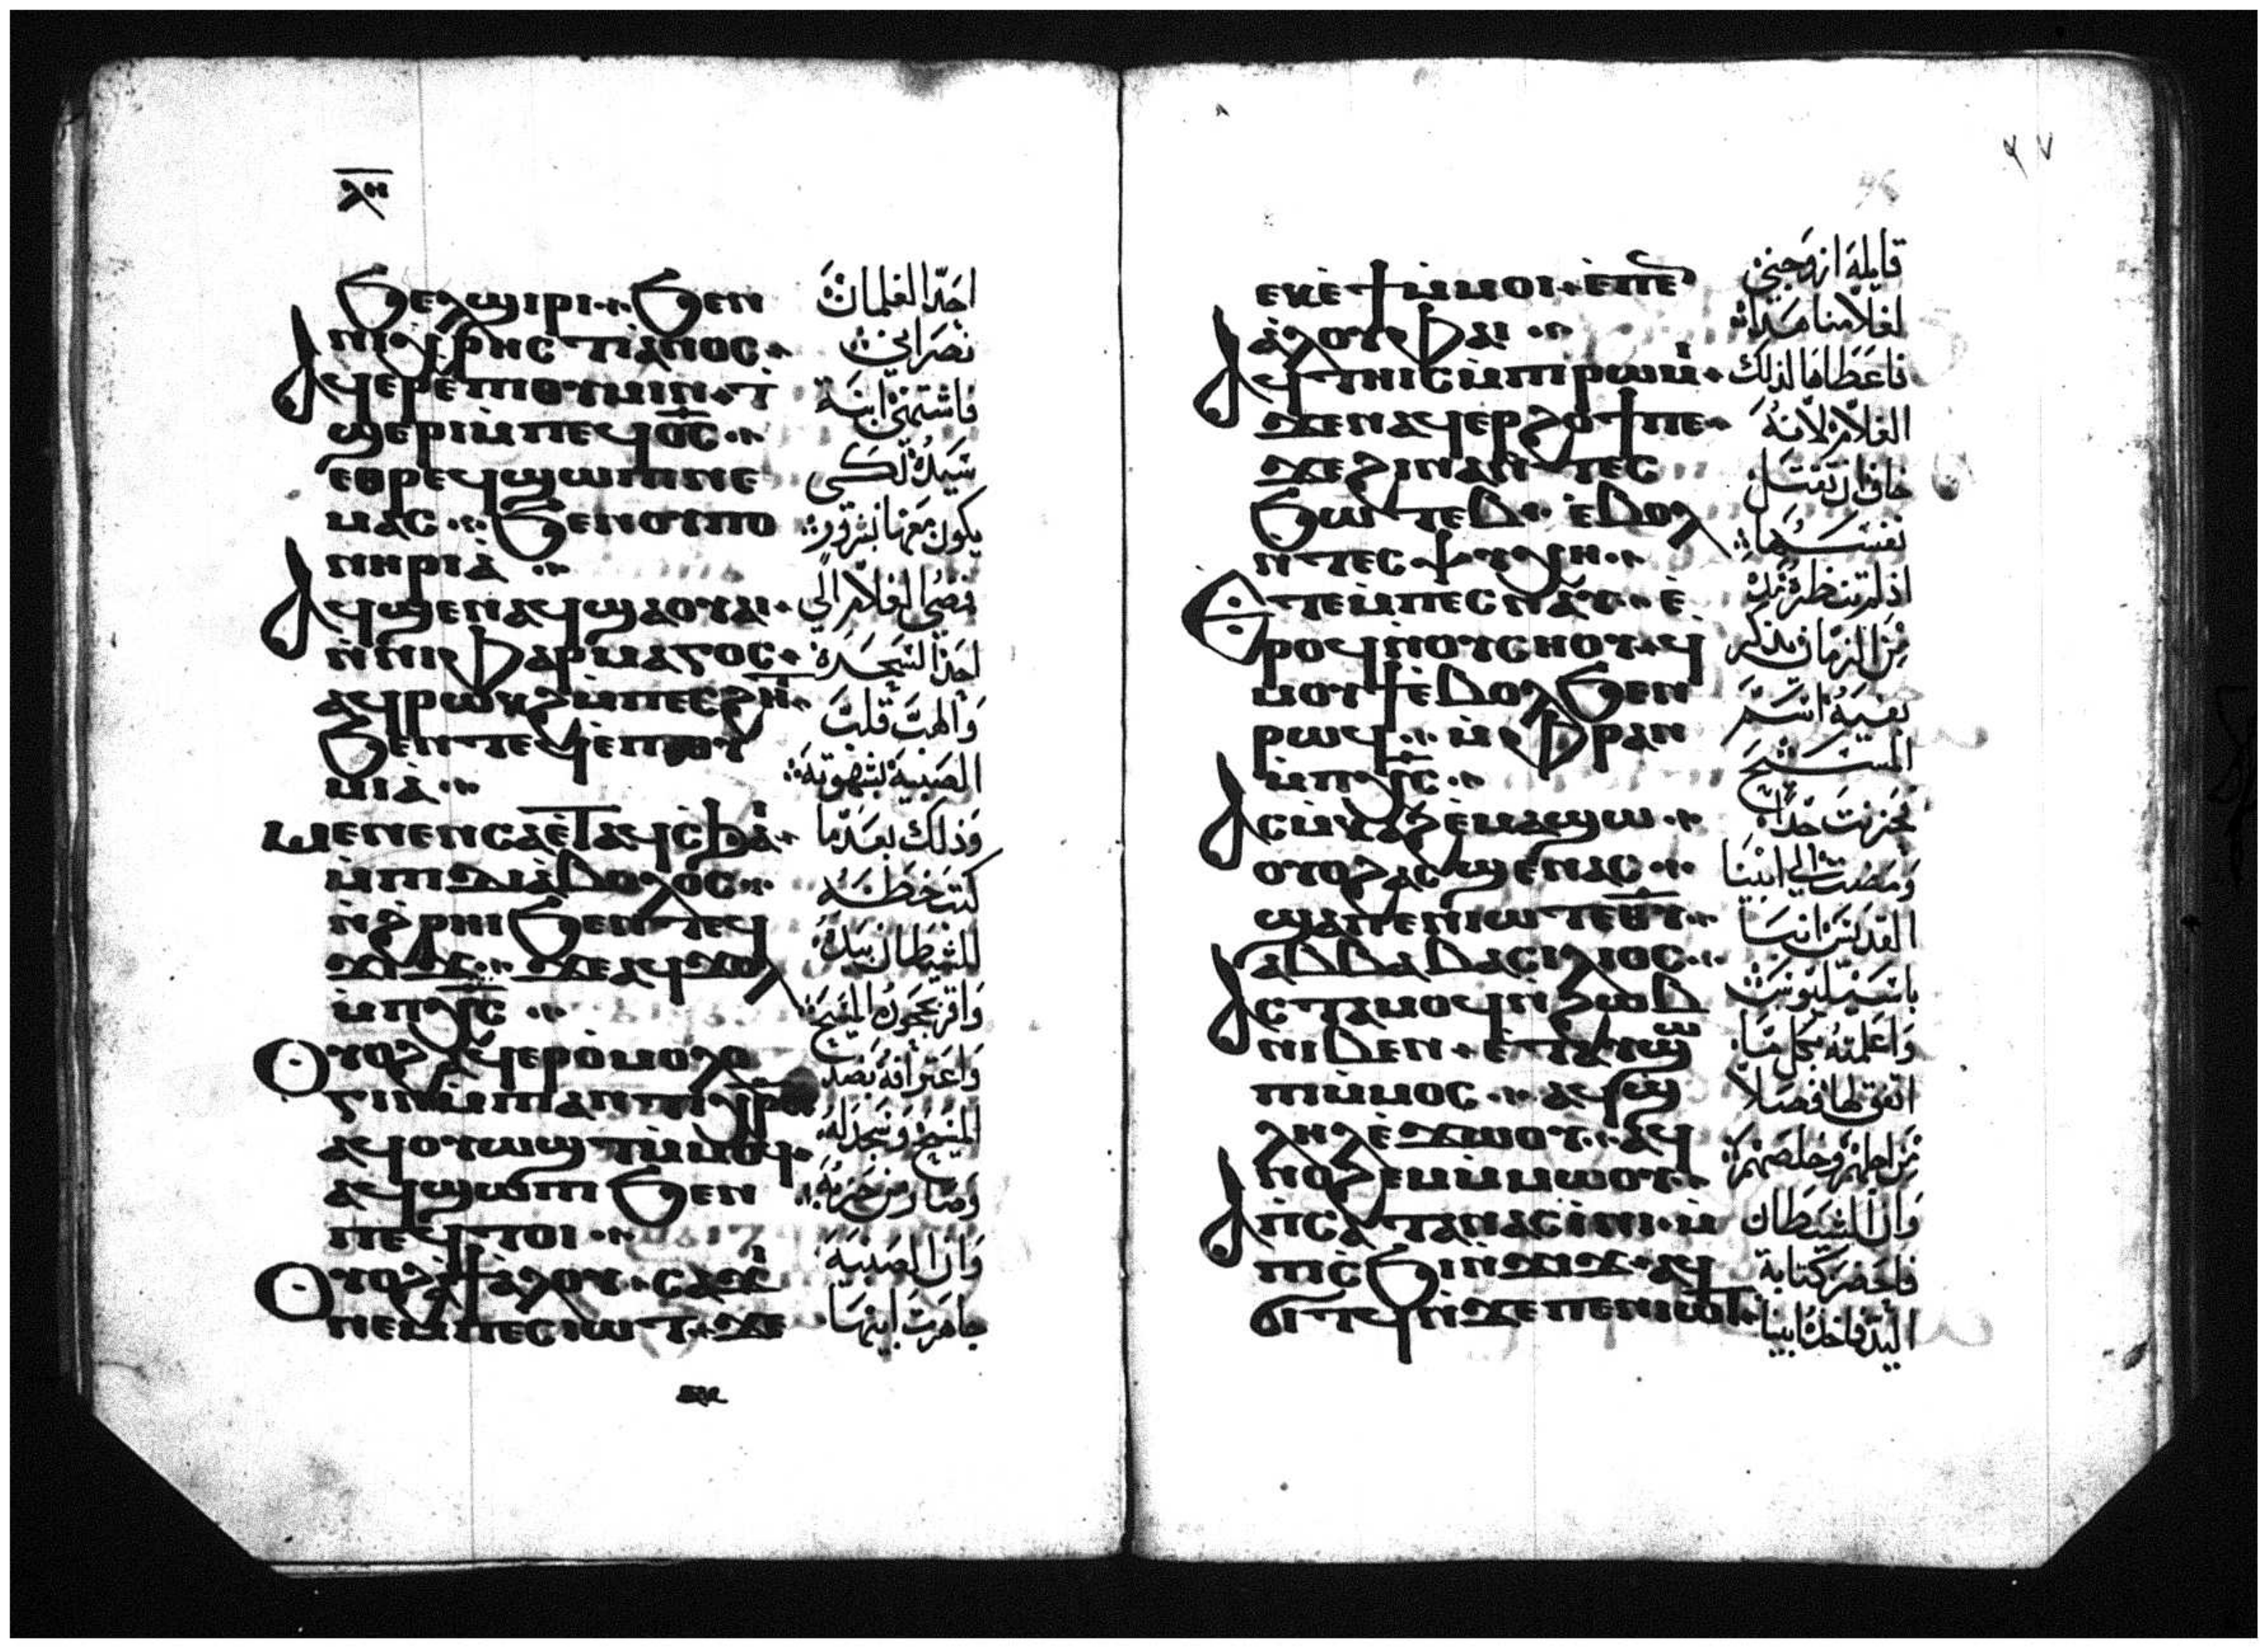 ϧⲉⲗϣⲓⲣⲓ ϧⲉⲛ
ⲡⲓⲭⲣⲏⲥⲧⲓⲁⲛⲟⲥ
ⲁϥⲉⲣⲉⲡⲓⲑⲩⲙⲓⲛ ⲧ̀
ϣⲉⲣⲓⲙ̀ⲡⲉϥⲟ̅ⲥ̅
ⲉⲑⲣⲉϥϣⲱⲡⲓⲛⲉ
ⲙⲁⲥ ϧⲉⲛⲟⲩⲡⲟ
ⲛⲏⲣⲓⲁ̀
ⲁϥϣⲉⲛⲁϥϣⲁⲟⲩⲁⲓ
ⲛ̀ⲛⲓⲫⲁⲣⲙⲁⲅⲟⲥ
ⲁϥⲣⲱⲕϩⲙ̀ⲡⲉⲥϩⲏⲧ
ϧⲉⲛⲧⲉϥⲉ̀ⲡⲓⲑⲩ
ⲙⲓⲁ̀
ⲙⲉⲛⲉⲛⲥⲁⲉ̀ⲧⲁϥⲥϧⲁⲓ
ⲙ̀ⲡⲓⲇⲓⲁ̀ⲃⲟⲗⲟⲥ
ⲛ̀ϩ̀ⲣⲏⲓϧⲉⲛⲧⲉϥ
ϫⲓϫ ϫⲉⲁϥϫⲟⲗ
ⲙ̀ⲡⲭ̅ⲥ̅
ⲟⲩⲟϩⲁϥⲉⲣⲟ̀ⲙⲟⲗⲟ
ⲅⲓⲛⲙ̀ⲡⲓⲁⲛⲧⲓⲭⲣⲥ
ⲁϥⲟⲩⲱϣⲧⲙ̀ⲙⲟϥ
ⲁϥϣⲱⲡⲓ ϧⲉⲛ
ⲡⲉϥⲧⲟⲓ
ⲟⲩⲟϩⲁ̀ϯⲁ̀ⲗⲟⲩ ⲥⲁϫⲓ
ⲛⲉⲙⲡⲉⲥⲓⲱⲧ ϫⲉ
احد الغلمان
نصراني
فاشتهى ابنة
سيده لكي
يكون معها بشرور
فمضى الغلام الى
احد السحرة
والهب قلب
الصبية بشهوته
وذلك بعد ما
كتب خطه
للشيطان بيده
واقر بجحود المسيح
واعترافه بضد
المسيح وسجد له
وصار من حزبه
وان الصبية
جاهرت ابيها
٩٧
ⲉⲕⲉ̀ϯⲙ̀ⲙⲟⲓ ⲉ̀ⲡⲉ
ⲁ̀ⲗⲟⲩ ⲫⲁⲓ
ⲁϥⲧⲏⲓⲥⲙ̀ⲡⲓⲣⲱⲙⲓ
ϫⲉⲛⲁϥⲉⲣϩⲟϯⲡⲉ
ϫⲉϩⲓⲛⲁⲛ̀ⲧⲉⲥ
ϧⲱⲧⲉⲃ ⲉ̀ⲃⲟⲗ
ⲛ̀ⲧⲉⲥⲯⲩⲭⲏ
ⲉⲧⲉⲙ̀ⲡⲉⲥⲛⲁⲩ ⲉ̀
ⲣⲟϥⲛ̀ⲟⲩⲥⲏⲟⲩ ϥ̀
ⲙⲟⲩϯⲉ̀ⲃⲟⲗϧⲉⲛ
ⲣⲱϥ ⲙ̀ⲫⲣⲁⲛ
ⲙ̀ⲡⲭ̅ⲥ̅
ⲁⲥⲙ̀ⲕⲁϩⲉ̀ⲙⲁϣⲱ
ⲟⲩⲟϩⲁⲥϣⲉⲛⲁⲥ
ϣⲁⲡⲉⲛⲓⲱⲧⲉ̅ⲑ̅ⲩ̅
ⲁⲃⲃⲁⲃⲁⲥⲓⲗⲓⲟⲥ
ⲁⲥⲧⲁⲙⲟϥⲛ̀ϩⲱⲃ
ⲛⲓⲃⲉⲛ ⲉ̀ⲧⲁⲩϣⲱ
ⲡⲓⲙ̀ⲙⲟⲥ ⲁϥϣ
ⲗⲏⲗⲉ̀ϫⲱⲟⲩ ⲁϥ
ⲛⲟϩⲉⲙⲙ̀ⲙⲱⲟⲩ
ⲁⲡⲥⲁⲧⲁⲛⲁⲥⲓ̀ⲛⲓ ⲙ̀
ⲡⲓⲥϧⲓⲛ̀ϫⲓϫ ⲁϥ
ϭⲓⲧϥⲛ̀ϫⲉⲡⲉⲛⲓⲱⲧ
قايلة ان زوجني
لغلامنا هذا
فاعطاها لذلك
الغلام لانه
خاف ان تقتل
نفسها
اذ لم تنظره مدة
من الزمان يذكر
بفيه اسم
المسيح
فحزنت جدا
ومضت الى ابينا
القديس انبا
باسيليوس
واعلمته بكل ما
اتفق لها فصلا
من اجلهم وخلصهم
وان الشيطان
فاحضر كتابة
اليد فاخذه ابينا